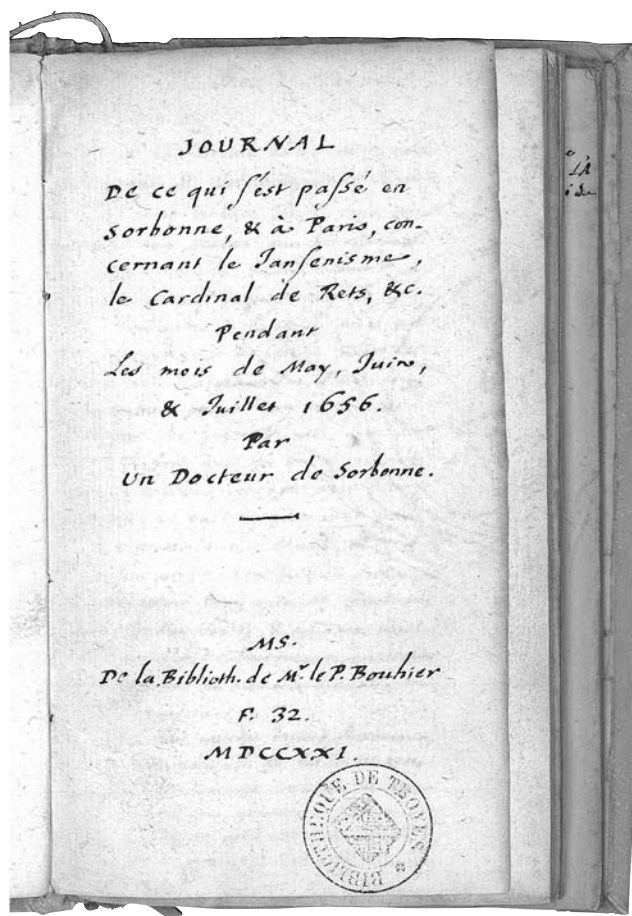 JOURNAL
De ce qui s'est passé en
Sorbonne, & à Paris, con-
cernant le Jansenisme,
le Cardinal de Rets, &c.
Pendant
Les mois de May, Juin,
& Juillet 1656.
Par
Un Docteur de Sorbonne.
MS.
De la Biblioth. de Mr. le P. Bouhier
F. 32.
MDCCXXI.
BIBLIOTHEQUE DE TROYES